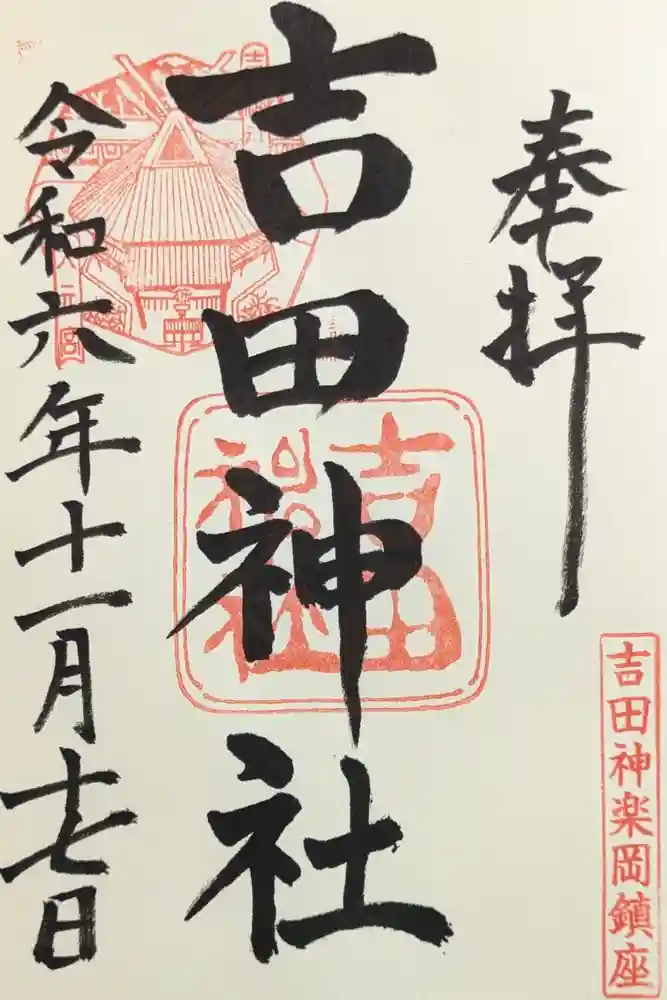 奉拝
吉田神楽岡鎮座
吉田神社
吉田神社
令和六年十一月十七日